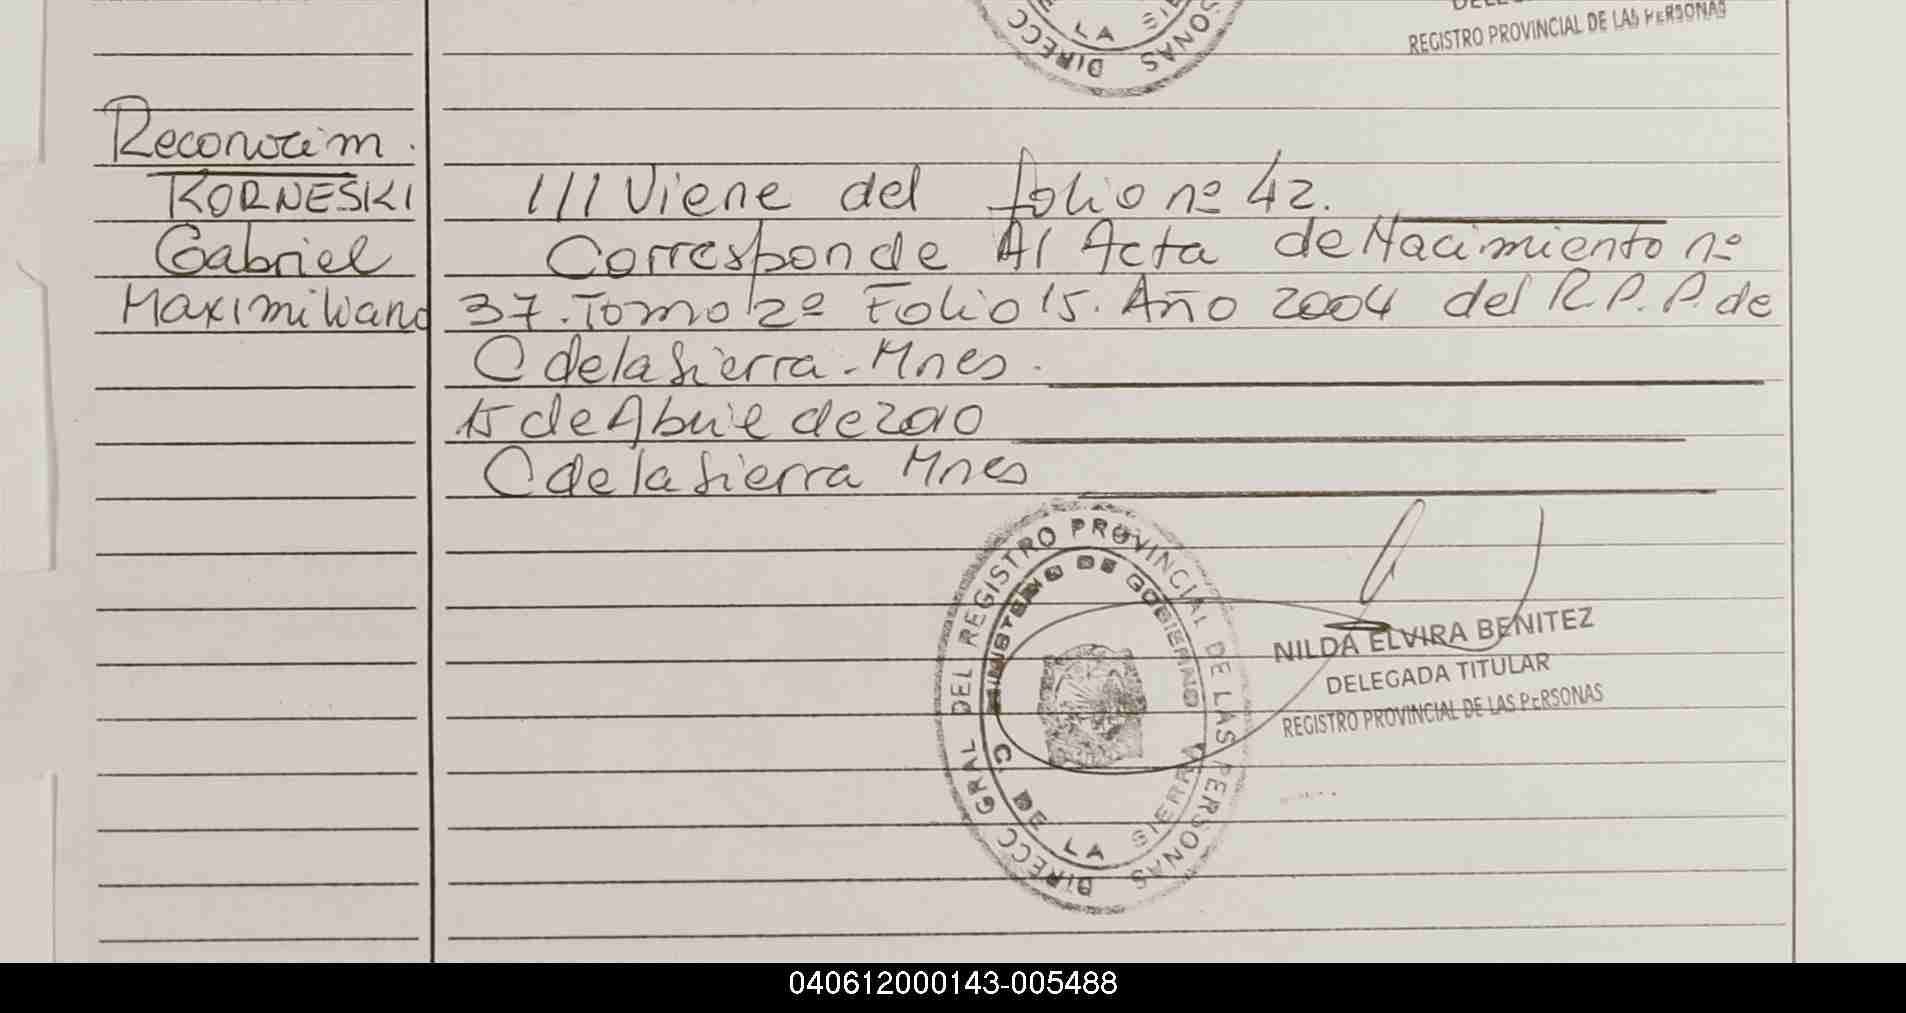 REGISTRO PROVINCIAL DE LAS PERSONAS
DIRECC
LA SIE
SONAS
Reconocim.
KORNESKI
Gabriel
Maximiliano
///Viene del folio nº 42.
Corresponde Al Acta de Nacimiento nº
37. Tomo 2º Folio 15. Año 2004 del R.P.P. de
C de la Sierra - Mnes.
15 de Abril de 2010
C de la Sierra Mnes
DIRECC GRAL DEL REGISTRO PROVINCIAL DE LAS PERSONAS
MINISTERIO DE GOBIERNO
C. DE LA SIERRA
NILDA ELVIRA BENITEZ
DELEGADA TITULAR
REGISTRO PROVINCIAL DE LAS PERSONAS
040612000143-005488